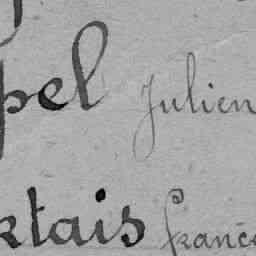 pel Julien
ktais franç